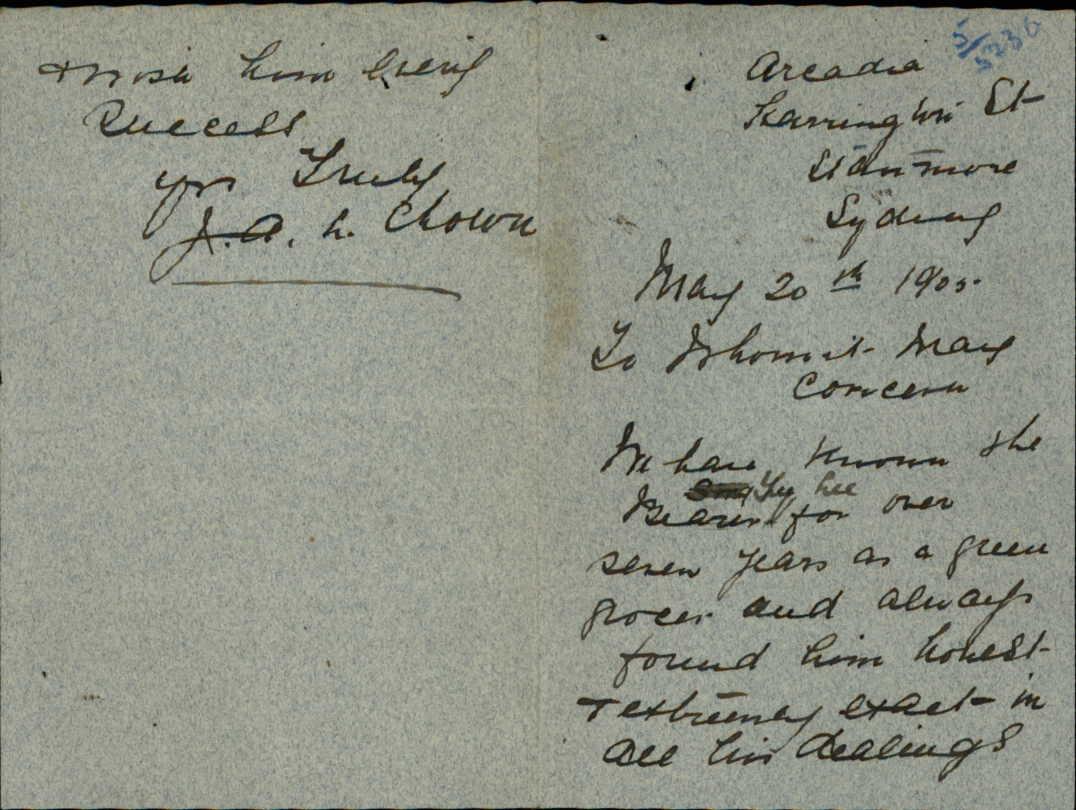 5/5236
Arcadia
Harrington St
Stanmore
Sydney
May 20th 1905.
To Whom it May
Concern
We have known the
Yee Lee
Bearer for over
seven years as a green
grocer and always
found him honest
& extremely exact in
all his dealings
& wish him every
Success
yrs Truly
J. A. L. Chown